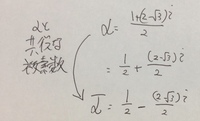 αと
共役な
複素数
α = 1+(2-√3)i / 2
= 1/2 + (2-√3)i / 2
ᾱ = 1/2 - (2-√3)i / 2